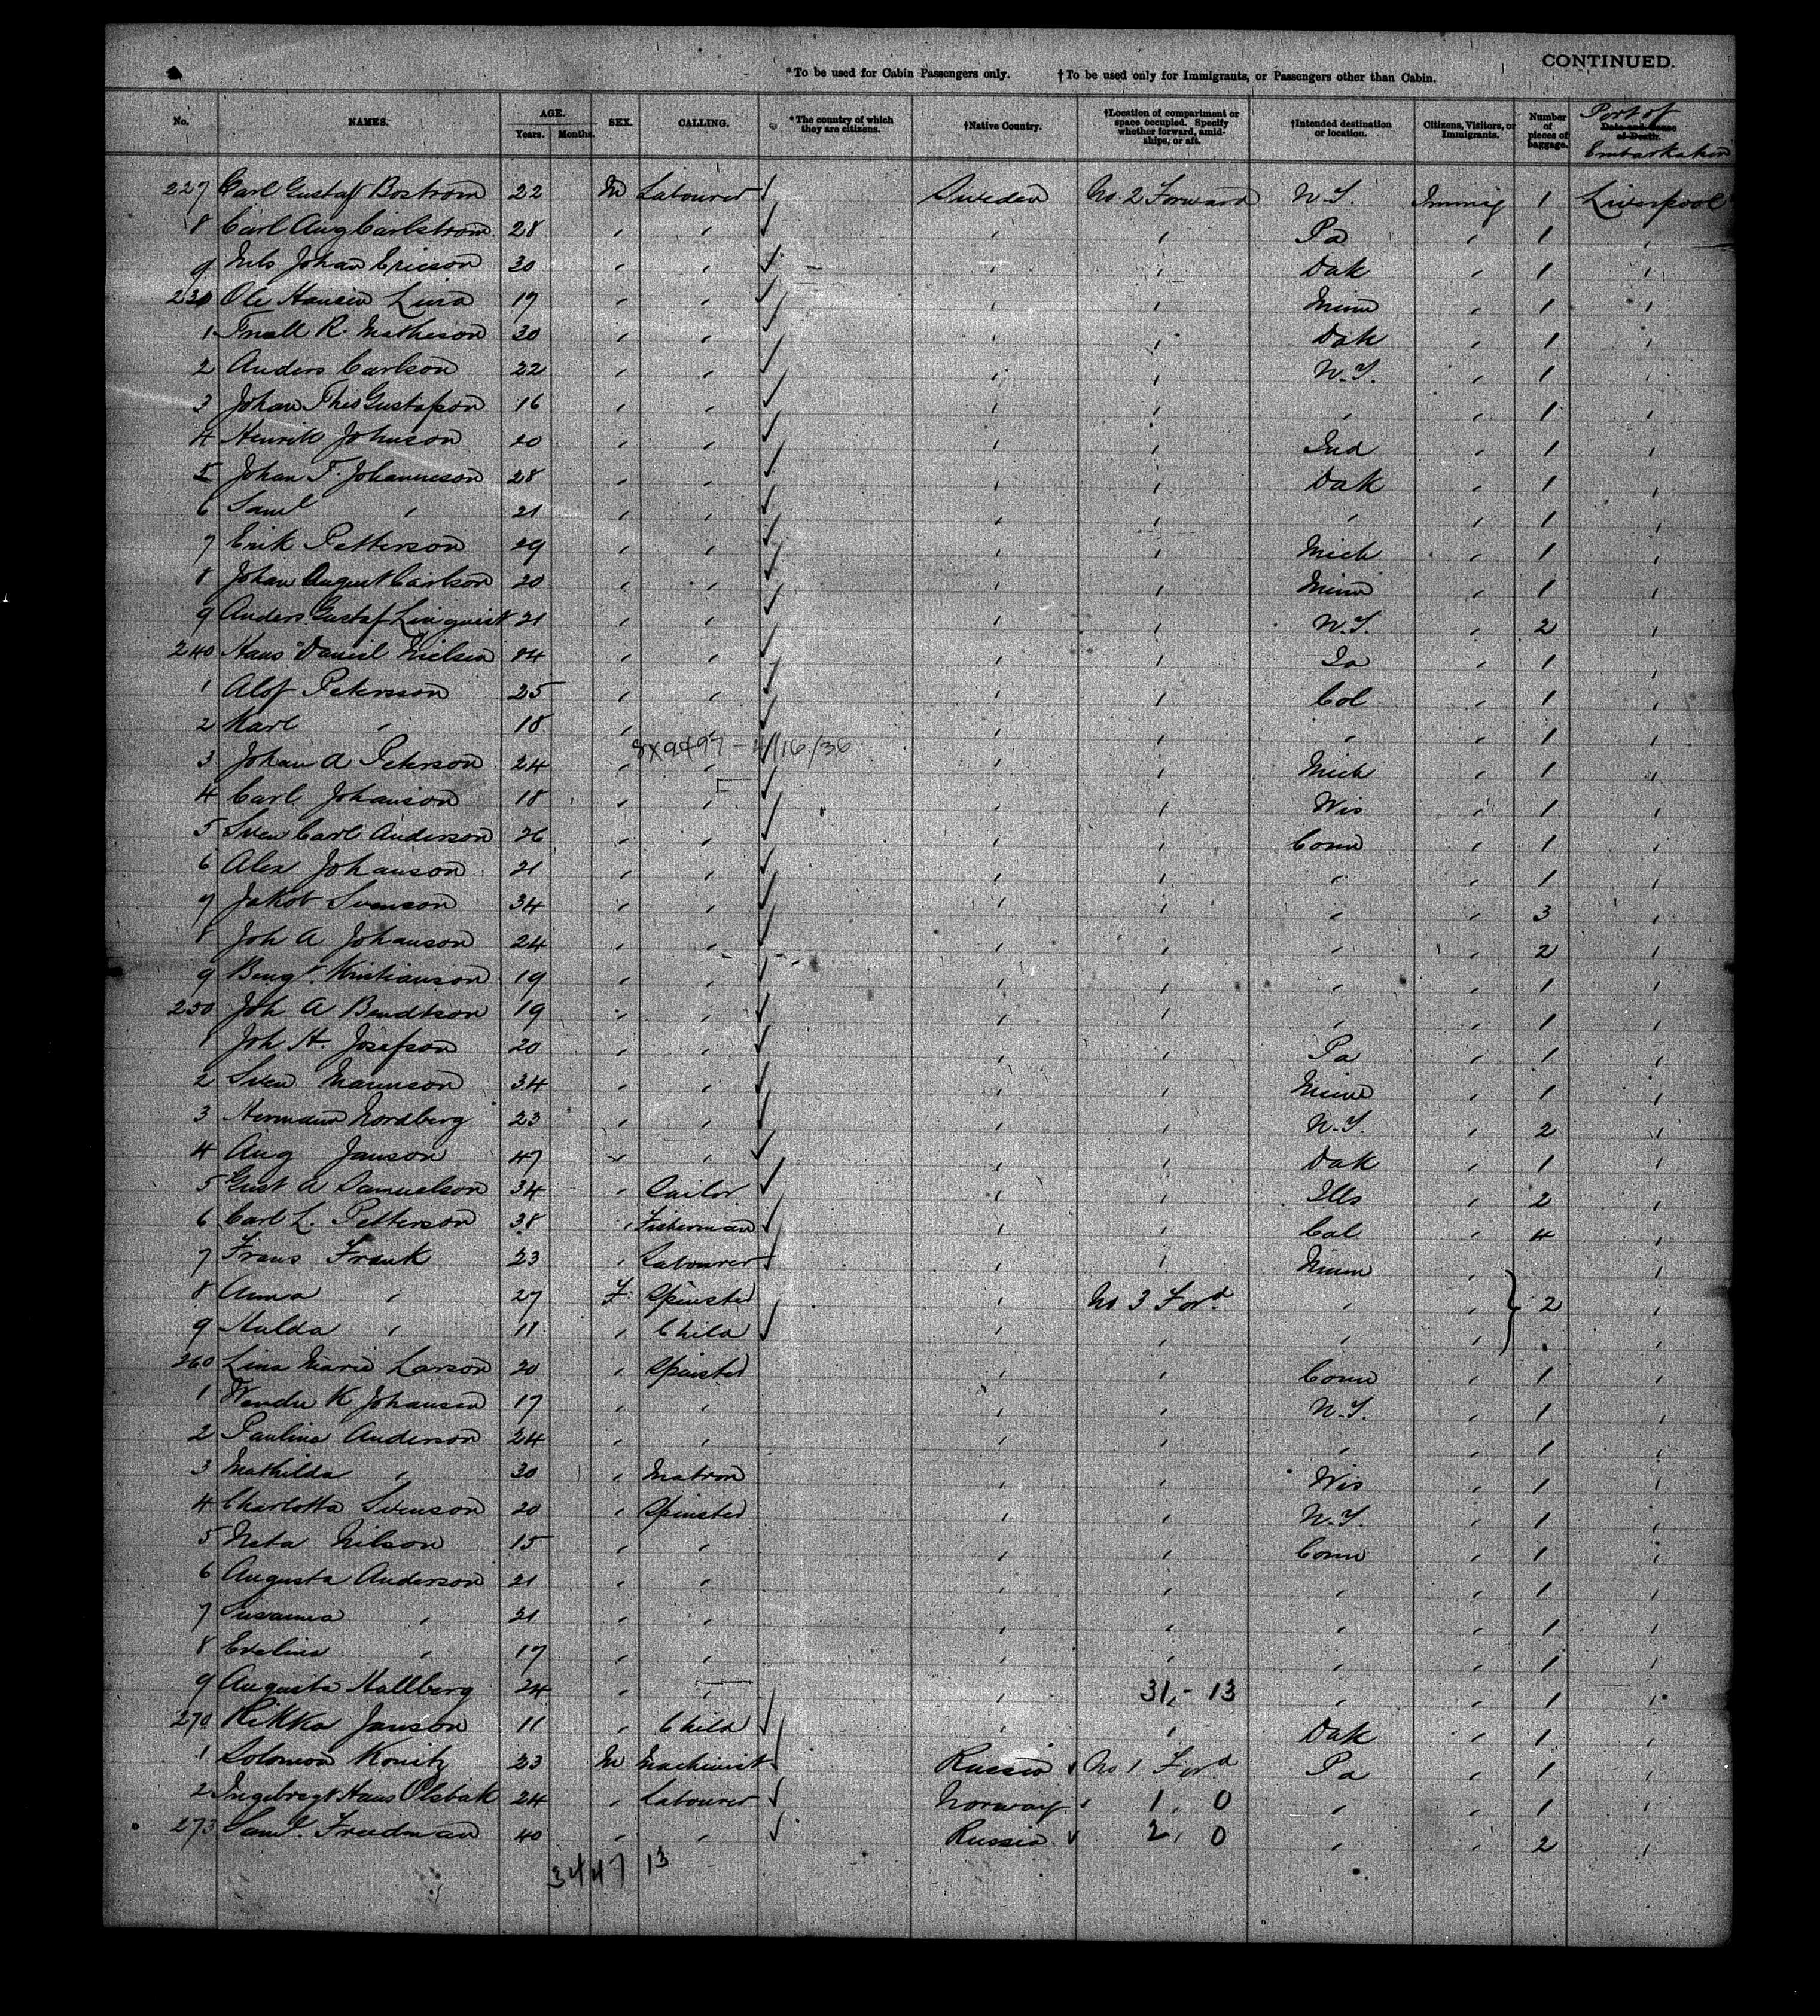 CONTINUED.
*To be used for Cabin Passengers only. †To be used only for Immigrants, or Passengers other than Cabin.
No. NAMES. AGE. Years. Months. SEX. CALLING. *The country of which they are citizens. †Native Country. †Location of compartment or space occupied. Specify whether forward, amidships, or aft. †Intended destination or location. Citizens, Visitors, or Immigrants. Number of pieces of baggage. Date and Cause of Death. Port of Embarkation
227 Carl Gustaf Bostrom 22 M Labourer Sweden No. 2 Forward N.Y. Immig 1 Liverpool
8 Carl Aug Carlstrom 28 " " " " Pa " 1 "
9 Nils Johan Ericson 30 " " " " Dak " 1 "
230 Ole Hansen 19 " " " " Minn " 1 "
1 R. Mathieson 30 " " " " Dak " 1 "
2 Anders Carlson 22 " " " " N.Y. " 1 "
3 Johan Theo Gustafson 16 " " " " " " 1 "
4 Henrik Johnson 20 " " " " Ind " 1 "
5 Johan F. Johanneson 28 " " " " Dak " 1 "
6 Saml " 21 " " " " " " 1 "
7 Erik Petterson 29 " " " " Mich " 1 "
8 Johan August Carlson 20 " " " " Minn " 1 "
9 Anders Gustaf Linquist 21 " " " " N.Y. " 2 "
240 Hans Daniel Nielsen " " " " Ia " 1 "
1 Alof Peterson 25 " " " " Col " 1 "
2 Karl " 18 " " " " " " 1 "
3 Johan A Peterson 24 " " " " Mich " 1 "
4 Carl Johanson 18 " " " " Wis " 1 "
5 Sven Carl Anderson 26 " " " " Conn " 1 "
6 Alex Johanson 21 " " " " " " 1 "
7 Jakob Svenson 34 " " " " " " 3 "
8 Joh A Johanson 24 " " " " " " 2 "
9 Bengt Kristianson 19 " " " " " " 1 "
250 Joh A Bendtson 19 " " " " " " 1 "
1 Joh H. Josefson 20 " " " " Pa " 1 "
2 Sven 34 " " " " Minn " 1 "
3 Herman Nordberg 23 " " " " N.Y. " 2 "
4 Aug Janson 47 " " " " Dak " 1 "
5 Gust A Samuelson 34 " Sailor " " Ills " 2 "
6 Carl L. Petterson 38 " Fisherman " " Cal " 4 "
7 Frans Frank 23 " Labourer " " Minn " "
8 Anna " 27 F Spinster " No 3 Ford " " 2 "
9 Hulda " 11 " Child " " " " "
260 Lina Marie Larson 20 " Spinster " " Conn " 1 "
1 K Johansen 17 " " " " N.Y. " 1 "
2 Paulina Anderson 24 " " " " " " 1 "
3 Mathilda " 30 " Matron " " Wis " 1 "
4 Charlotta Svenson 20 " Spinster " " N.Y. " 1 "
5 Neta Nilson 15 " " " " Conn " 1 "
6 Augusta Anderson 21 " " " " " " 1 "
7 Susanna " 21 " " " " " " 1 "
8 Evelina " 17 " " " " " " 1 "
9 Augusta Hallberg 24 " " " 31 - 13 " " 1 "
270 Rikka Janson 11 " Child " " Dak " 1 "
1 Solomon Konitz 23 M Machinist Russia No 1 Ford Pa " 1 "
2 Ingebregt Hans Olsbak 24 " Labourer Norway 1, 0 " " 1 "
273 Saml. Freedman 40 " " Russia 2, 0 " " 2 "
3447 13